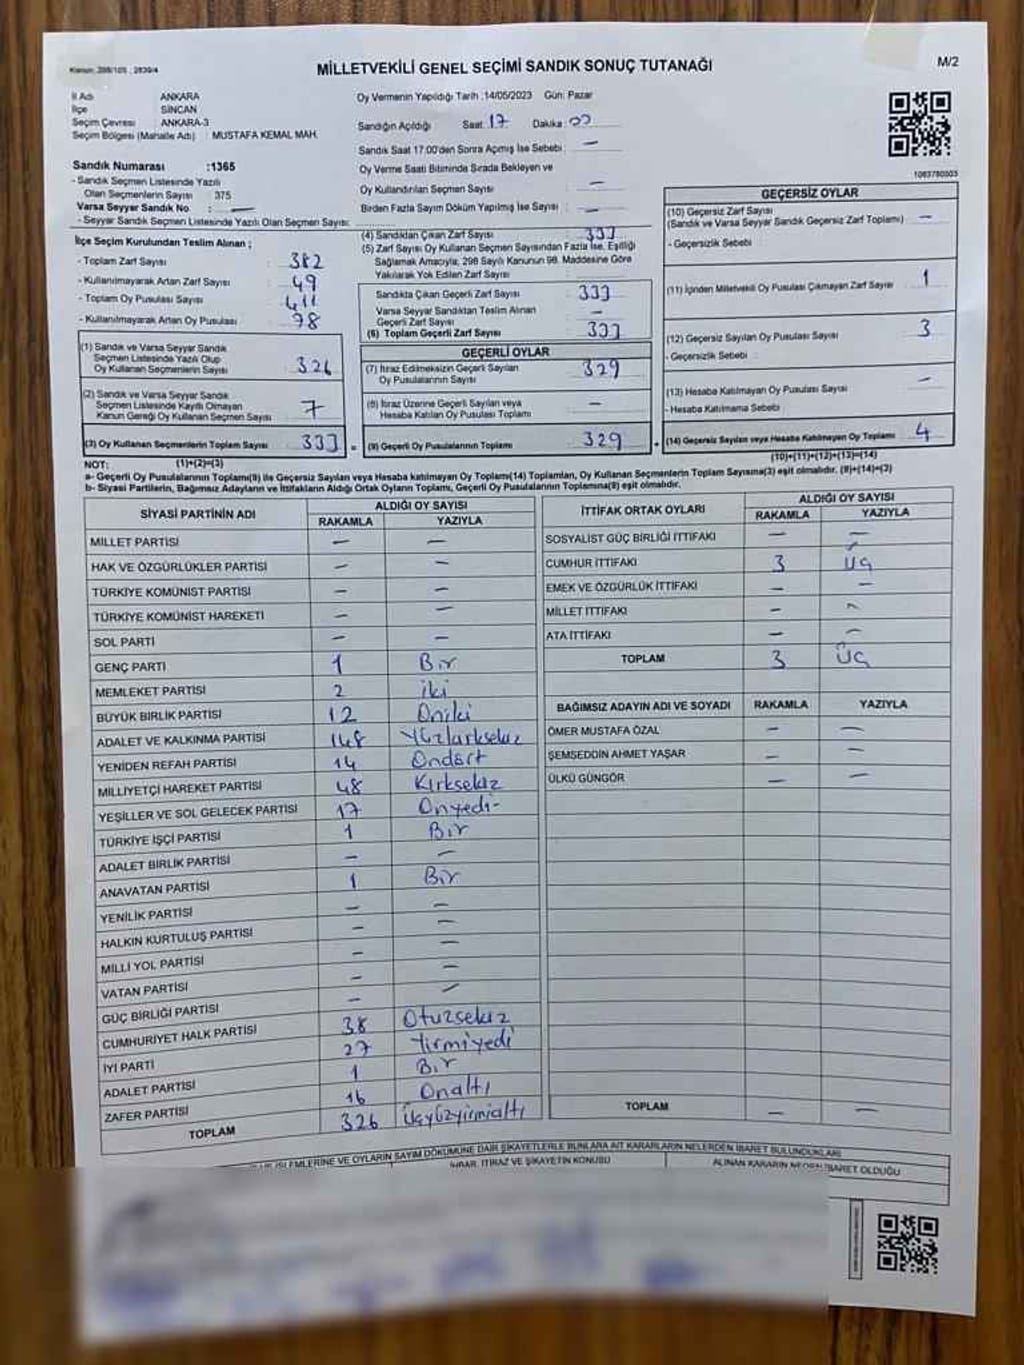 Kanun: 298/105 ; 2839/4
MİLLETVEKİLİ GENEL SEÇİMİ SANDIK SONUÇ TUTANAĞI
M/2
İl Adı ANKARA
İlçe SİNCAN
Seçim Çevresi : ANKARA-3
Seçim Bölgesi (Mahalle Adı) : MUSTAFA KEMAL MAH.
Oy Vermenin Yapıldığı Tarih :14/05/2023 Gün: Pazar
Sandığın Açıldığı Saat: 17 Dakika: 00
Sandık Saat 17:00'den Sonra Açılmış İse Sebebi : —
Oy Verme Saati Bitiminde Sırada Bekleyen ve
Oy Kullandırılan Seçmen Sayısı : —
Birden Fazla Sayım Döküm Yapılmış İse Sayısı : —
Sandık Numarası :1365
- Sandık Seçmen Listesinde Yazılı
Olan Seçmenlerin Sayısı : 375
Varsa Seyyar Sandık No : —
- Seyyar Sandık Seçmen Listesinde Yazılı Olan Seçmen Sayısı:
İlçe Seçim Kurulundan Teslim Alınan ;
- Toplam Zarf Sayısı : 382
- Kullanılmayarak Artan Zarf Sayısı : 49
- Toplam Oy Pusulası Sayısı : 411
- Kullanılmayarak Artan Oy Pusulası : 78
(1) Sandık ve Varsa Seyyar Sandık
Seçmen Listesinde Yazılı Olup
Oy Kullanan Seçmenlerin Sayısı : 326
(2) Sandık ve Varsa Seyyar Sandık
Seçmen Listesinde Kayıtlı Olmayan
Kanun Gereği Oy Kullanan Seçmen Sayısı : 7
(3) Oy Kullanan Seçmenlerin Toplam Sayısı : 333
(1)+(2)=(3)
(4) Sandıktan Çıkan Zarf Sayısı : 333
(5) Zarf Sayısı Oy Kullanan Seçmen Sayısından Fazla İse, Eşitliği
Sağlamak Amacıyla, 298 Sayılı Kanunun 98. Maddesine Göre
Yakılarak Yok Edilen Zarf Sayısı :
Sandıkta Çıkan Geçerli Zarf Sayısı : 333
Varsa Seyyar Sandıktan Teslim Alınan
Geçerli Zarf Sayısı : —
(6) Toplam Geçerli Zarf Sayısı : 333
GEÇERLİ OYLAR
(7) İtiraz Edilmeksizin Geçerli Sayılan
Oy Pusulalarının Sayısı : 329
(8) İtiraz Üzerine Geçerli Sayılan veya
Hesaba Katılan Oy Pusulası Toplamı : —
= (9) Geçerli Oy Pusulalarının Toplamı : 329
1083780503
GEÇERSİZ OYLAR
(10) Geçersiz Zarf Sayısı
(Sandık ve Varsa Seyyar Sandık Geçersiz Zarf Toplamı) : —
- Geçersizlik Sebebi :
(11) İçinden Milletvekili Oy Pusulası Çıkmayan Zarf Sayısı : 1
(12) Geçersiz Sayılan Oy Pusulası Sayısı : 3
- Geçersizlik Sebebi :
(13) Hesaba Katılmayan Oy Pusulası Sayısı : —
- Hesaba Katılmama Sebebi :
+ (14) Geçersiz Sayılan veya Hesaba Katılmayan Oy Toplamı : 4
(10)+(11)+(12)+(13)=(14)
NOT:
a- Geçerli Oy Pusulalarının Toplamı(9) ile Geçersiz Sayılan veya Hesaba katılmayan Oy Toplam(14) Toplamları, Oy Kullanan Seçmenlerin Toplam Sayısına(3) eşit olmalıdır. (9)+(14)=(3)
b- Siyasi Partilerin, Bağımsız Adayların ve İttifakların Aldığı Ortak Oyların Toplamı, Geçerli Oy Pusulalarının Toplamına(9) eşit olmalıdır.
SİYASİ PARTİNİN ADI ALDIĞI OY SAYISI
RAKAMLA YAZIYLA
MİLLET PARTİSİ — —
HAK VE ÖZGÜRLÜKLER PARTİSİ — —
TÜRKİYE KOMÜNİST PARTİSİ — —
TÜRKİYE KOMÜNİST HAREKETİ — —
SOL PARTİ — —
GENÇ PARTİ 1 Bir
MEMLEKET PARTİSİ 2 iki
BÜYÜK BİRLİK PARTİSİ 12 Oniki
ADALET VE KALKINMA PARTİSİ 148 Yüzkırksekiz
YENİDEN REFAH PARTİSİ 14 Ondört
MİLLİYETÇİ HAREKET PARTİSİ 48 Kırksekiz
YEŞİLLER VE SOL GELECEK PARTİSİ 17 Onyedi-
TÜRKİYE İŞÇİ PARTİSİ 1 Bir
ADALET BİRLİK PARTİSİ — —
ANAVATAN PARTİSİ 1 Bir
YENİLİK PARTİSİ — —
HALKIN KURTULUŞ PARTİSİ — —
MİLLİ YOL PARTİSİ — —
VATAN PARTİSİ — —
GÜÇ BİRLİĞİ PARTİSİ — —
CUMHURİYET HALK PARTİSİ 38 Otuzsekiz
İYİ PARTİ 27 Yirmiyedi
ADALET PARTİSİ 1 Bir
ZAFER PARTİSİ 16 Onaltı
TOPLAM 326 Üçyüzyirmialtı
İTTİFAK ORTAK OYLARI ALDIĞI OY SAYISI
RAKAMLA YAZIYLA
SOSYALİST GÜÇ BİRLİĞİ İTTİFAKI — —
CUMHUR İTTİFAKI 3 üç
EMEK VE ÖZGÜRLÜK İTTİFAKI — —
MİLLET İTTİFAKI — —
ATA İTTİFAKI — —
TOPLAM 3 Üç
BAĞIMSIZ ADAYIN ADI VE SOYADI RAKAMLA YAZIYLA
ÖMER MUSTAFA ÖZAL — —
ŞEMSEDDİN AHMET YAŞAR — —
ÜLKÜ GÜNGÖR — —
TOPLAM — —
İŞLEMLERİNE VE OYLARIN SAYIM DÖKÜMÜNE DAİR ŞİKAYETLERLE BUNLARA AİT KARARLARIN NELERDEN İBARET BULUNDUKLARI
İHBAR, İTİRAZ VE ŞİKAYETİN KONUSU ALINAN KARARIN NEDEN İBARET OLDUĞU